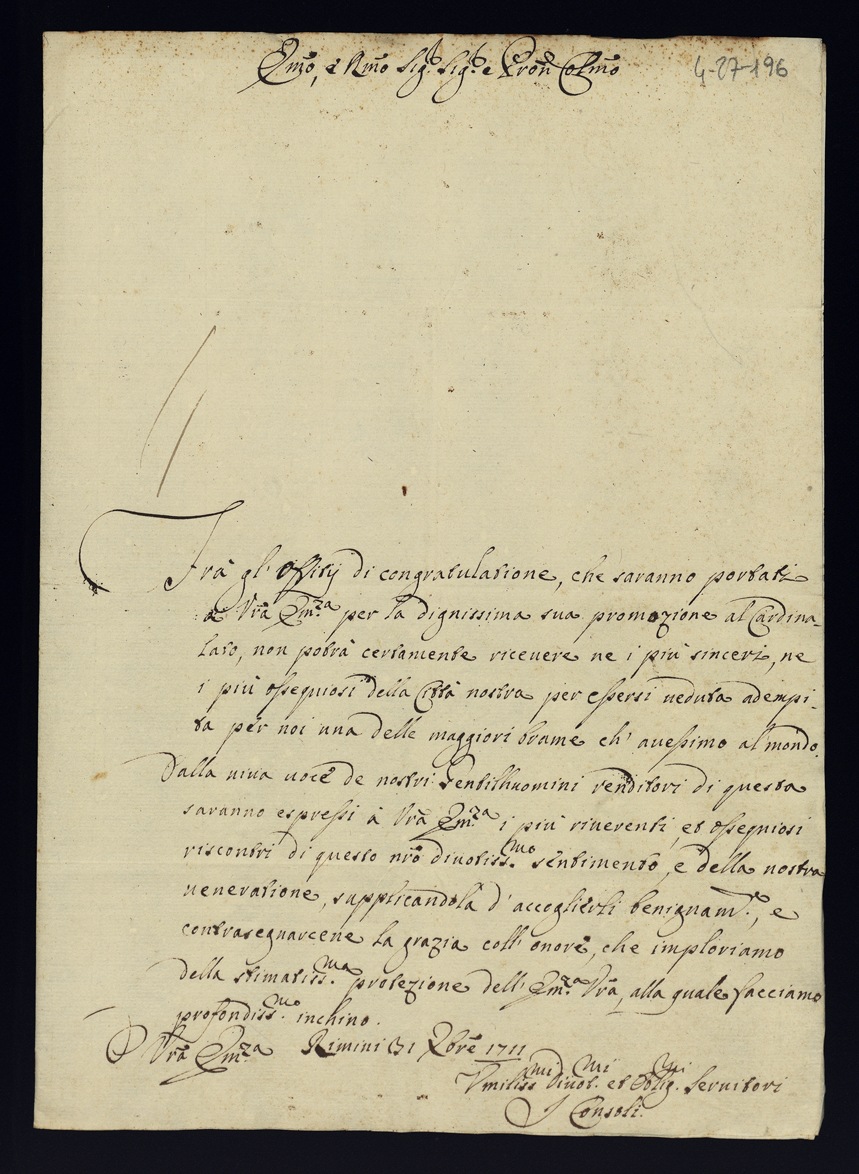 Emo, e Rmo Sig.r Sig.r e Pron Colmo
4-27-196
Frà gl' Offitij di congratulatione, che saranno portati
à Vrã Em.za per la dignissima sua promozione al Cardina-
lato, non potrà certamente riceuere ne i più sinceri, ne
i più ossequiosi della Città nostra per essersi ueduta adempi-
ta per noi una delle maggiori brame ch' auessimo al mondo.
Dalla uiua uoce de nostri Gentilhuomini renditori di questa
saranno espressi à Vrã Em.za i più riuerenti, et ossequiosi
riscontri di questo nrõ diuotiss.mo sentimento, e della nostra
ueneratione, supplicandola d' accoglierli benignam.te, e
contrasegnarcene la grazia coll' onore, che imploriamo
della stimatiss.ma protezione dell' Em.za Vrã, alla quale facciamo
profondiss.mo inchino.
D Vrã Em.za Rimini 31 Xbre 1711
Vmiliss.mi Diuot.mi et Oblig.mi Seruitori
I Consoli.